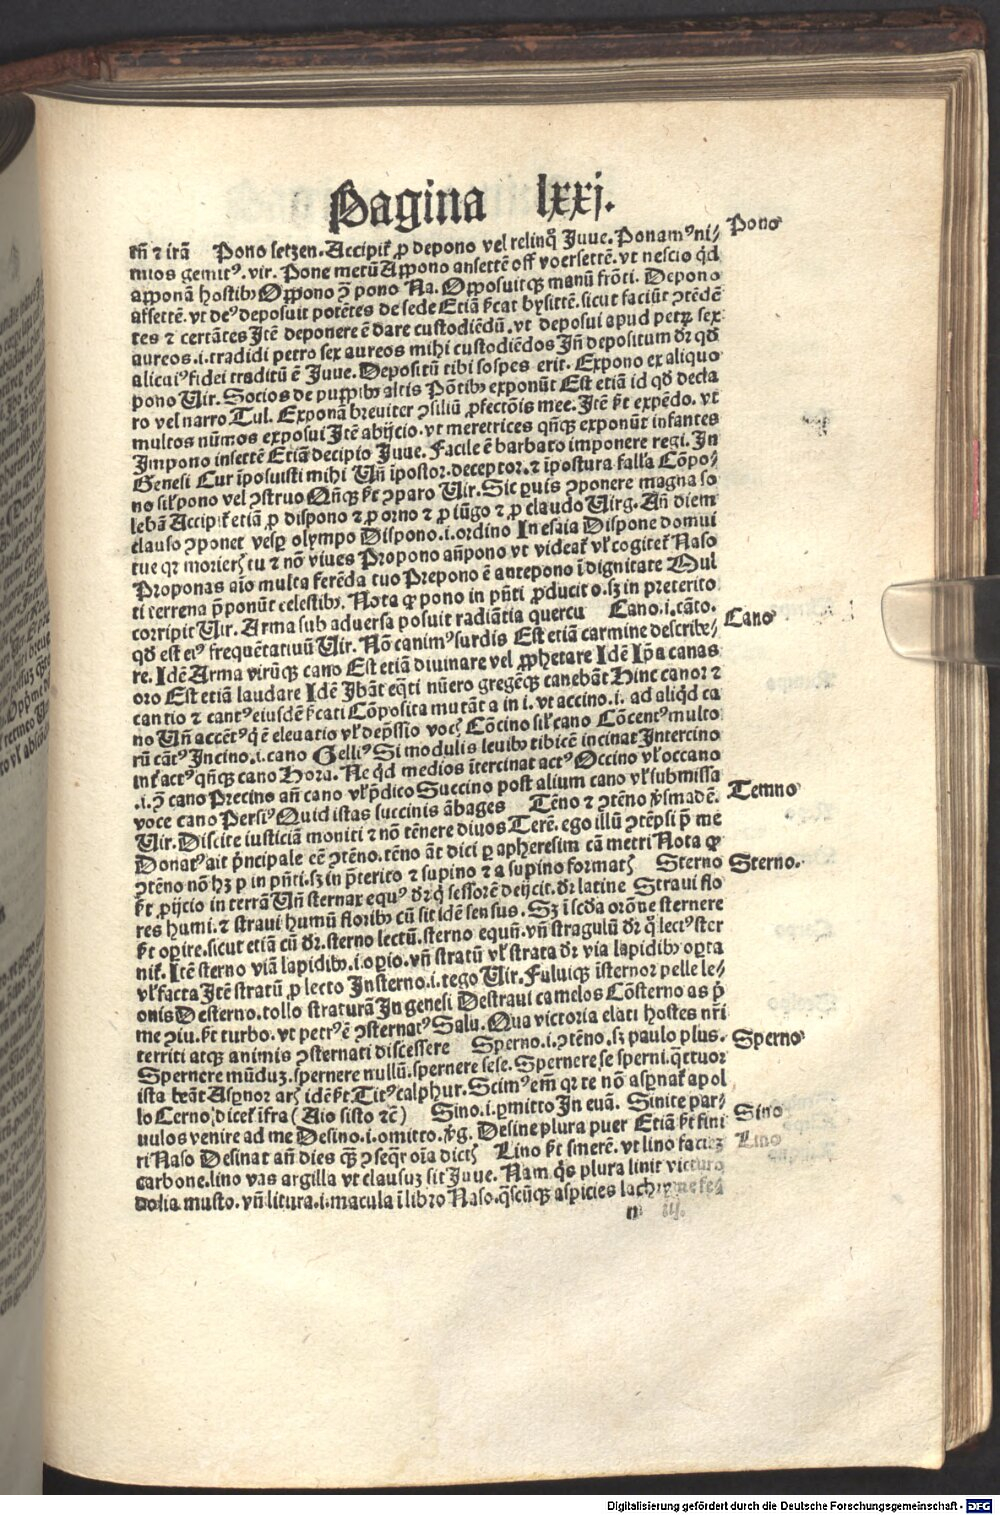 Pagina lxxj.
em̄ ⁊ irā Pono setzen. Accipit̄ ꝓ depono vel relinq̄ Juue. Ponamꝰ ni⸗ Pono
mios gemitꝰ. vir. Pone metū Appono ansettē off voersettē. vt nescio qd̄
apponā hostibꝰ Oppono .i. ꝯ̄ pono Na. Opposuitqꝫ manū frōti. Depono
afsettē. vt deꝰ deposuit potētes de sede Etiā p̄cat bysittē. sicut faciūt ꝯtēdē
tes ⁊ certātes Itē deponere ē dare custodiēdū. vt deposui apud petrꝫ sex
aureos .i. tradidi petro sex aureos mihi custodiēdos Jn̄ depositum dr̄ qd̄
alicuiꝰ fidei traditū ē Juue. Depositū tibi sospes erit. Expono ex aliquo
pono Uir. Socios de puppibꝰ altis Pōtibꝰ exponūt Est etiā id qd̄ decla
ro vel narro Tul. Exponā breuiter ꝯsiliū ꝓfectōis mee. Itē s̄t expēdo. vt
multos nūmos exposui Itē abijcio. vt meretrices qn̄qꝫ exponūt infantes
Impono insettē Etiā decipio Juue. Facile ē barbato imponere regi. In
Genesi Cur īposuisti mihi Un̄ īpostor. deceptor. ⁊ īpostura falla Cōpo⸗
no sil̄ pono vel ꝯstruo Qn̄qꝫ s̄t ꝯparo Uir. Sic paruis ꝯponere magna so
lebā Accipit̄ etiā ꝓ dispono ⁊ ꝓ orno ⁊ ꝓ iūgo ⁊ ꝓ claudo Uirg. An̄ diem
clauso ꝯponet vesꝑ olympo Dispono .i. ordino In esaia Dispone domui
tue qꝛ morierꝭ tu ⁊ nō viues Propono an̄pono vt videat̄ vl̄ cogitet̄ Naso
Proponas aīo multa ferēda tuo Prepono ē antepono ī dignitate Mul
ti terrena p̄ponūt celestibꝰ. Nota ꝙ pono in pn̄ti ꝓducit o. sꝫ in preterito
corripit Uir. Arma sub aduersa posuit radiātia quercu Cano .i. cāto. Cano
qd̄ est eiꝰ frequētatiuū Uir. Nō canimꝰ surdis Est etiā carmine describe⸗
re. Idē Arma virūqꝫ cano Est etiā diuinare vel ꝓphetare Idē Ip̄a canas
oro Est etiā laudare Idē Ibāt eq̄ti nūero gregēqꝫ canebāt Hinc canor ⁊
cantio ⁊ cantꝰ eiusdē s̄cati Cōposita mutāt a in i. vt accino .i. ad aliqd̄ ca
no Un̄ accētꝰ q̄ ē eleuatio vl̄ dep̄ssio vocꝭ Cōcino sil̄ cano Cōcentꝰ multo
rū cātꝰ Incino .i. cano Gelliꝰ Si modulis leuibꝰ tibicē incinat Intercino
int̄ actꝰ qn̄qꝫ cano Hora. Ne qd̄ medios ītercinat actꝰ Occino vl̄ occano
.i. ꝯ̄ cano Precino an̄ cano vl̄ p̄dico Succino post alium cano vl̄ submissa
voce cano Persiꝰ Quid istas succinis ābages Tēno ⁊ ꝯtēno v̄smadē. Temno
Uir. Discite iusticiā moniti ⁊ nō tēnere diuos Terē. ego illū ꝯtēpsi p̄ me
Donatꝰ ait p̄ncipale eē ꝯtēno. tēno āt dici ꝑ apheresim cā metri Nota ꝙ
ꝯtēno nō hꝫ p in pn̄ti. sꝫ in p̄terito ⁊ supino ⁊ a supino formatꝭ Sterno Sterno.
s̄t ꝓijcio in terrā Un̄ sternax equꝰ dr̄ q̄ sessorē deijcit. dr̄ latine Straui flo
res humi. ⁊ straui humū floribꝰ cū sit idē sensus. Sꝫ ī scd̄a orōne sternere
s̄t oꝑire. sicut etiā cū dr̄. sterno lectū. sterno equū. vn̄ stragulū dr̄ q̄ lectꝰ ster
nit̄. Itē sterno viā lapidibꝰ. .i. oꝑio. vn̄ stratū vl̄ strata dr̄ via lapidibꝰ oꝑta
vl̄ facta Itē stratū ꝓ lecto Insterno .i. tego Uir. Fuluiqꝫ īsternor pelle le⸗
onis Desterno. tollo straturā In genesi Destraui camelos Cōsterno as p̄
me ꝯiu. s̄t turbo. vt petrꝰ ē ꝯsternatꝰ Salu. Qua victoria elati hostes nr̄i
territi atqꝫ animis ꝯsternati discessere Sperno .i. ꝯtēno. sꝫ paulo plus. Sperno
Spernere mūduꝫ. spernere nullū. spernere sese. Spernere se sperni. qttuor
ista beāt Aspernor arꝭ idē s̄t Titꝰ calphur. Scimꝰ em̄ qꝛ te nō aspnat̄ apol
lo Cerno dicet̄ īfra (Aio sisto ⁊c̄) Sino .i. ꝑmitto In euā. Sinite par⸗ Sino
uulos venire ad me Desino .i. omitto. v̄g. Desine plura puer Etiā s̄t fini
ri Naso Desinat an̄ dies qꝫ̄ ꝯseqr oīa dictꝭ Lino s̄t smerē. vt lino facieꝫ Lino
carbone. lino vas argilla vt clausuꝫ sit Juue. Nam q̄s plura linit victuro
dolia musto. vn̄ litura .i. macula ī libro Naso. q̄scūqꝫ aspicies lachryme fe⸗
n iij.
Digitalisierung gefördert durch die Deutsche Forschungsgemeinschaft - DFG